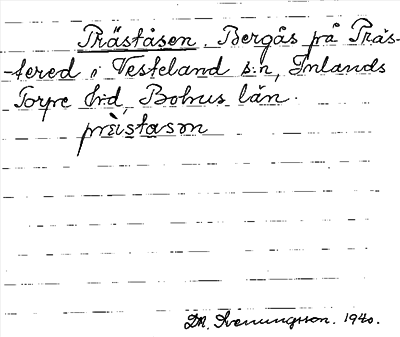 Präståsen. Bergås på Präs-
tered i Vesteland s:n, Inlands
Torpe h:d, Bohus län.
prèstasɔn
DM. Svenungsson. 1940.